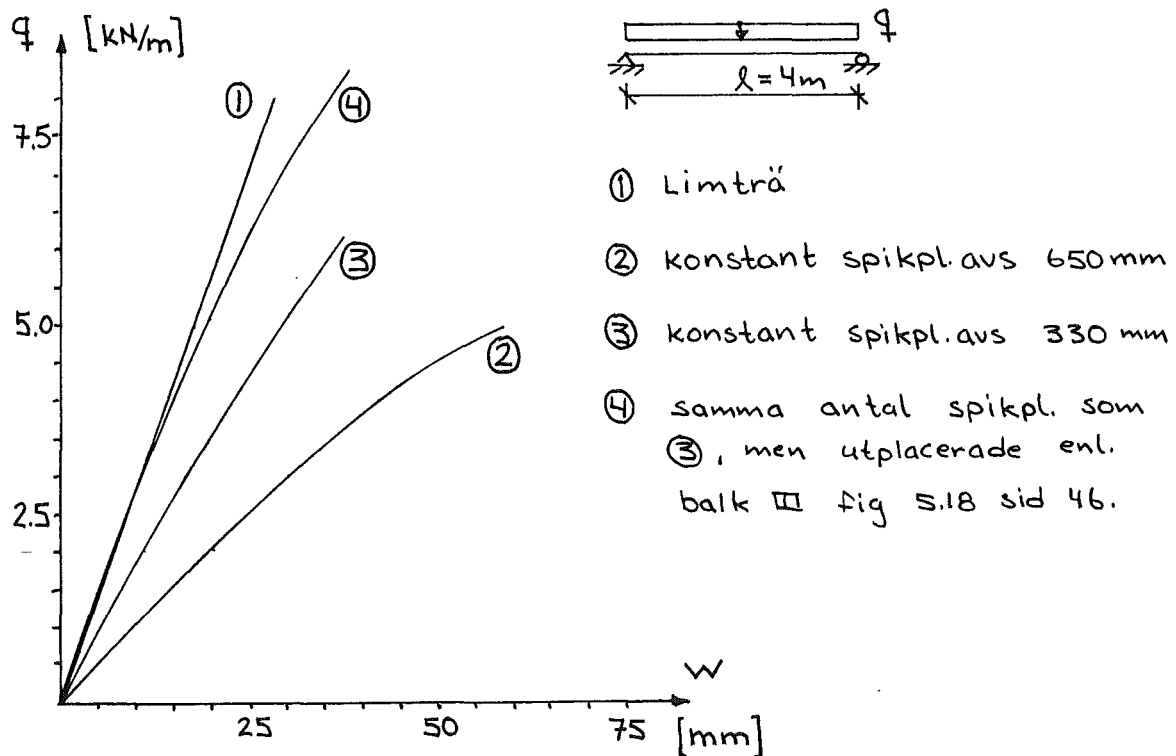 q [kN/m]
7.5
5.0
2.5
25 50 75
w
[mm]
①
④
③
②
q
l = 4m
① Limträ
② konstant spikpl. avs 650 mm
③ konstant spikpl. avs 330 mm
④ samma antal spikpl. som
③, men utplacerade enl.
balk III fig 5.18 sid 46.